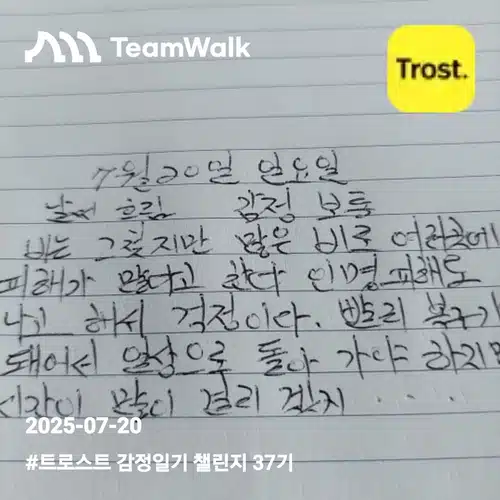 TeamWalk
Trost.
7월 20일 일요일
날씨 흐림 감정 보통
비는 그쳤지만 많은 비로 여러곳에
피해가 많다고 한다 인명피해도
나고 해서 걱정이다. 빨리 복구가
돼어서 일상으로 돌아 가야 하지만
시간이 많이 걸리 겠지 . . .
2025-07-20
#트로스트 감정일기 챌린지 37기